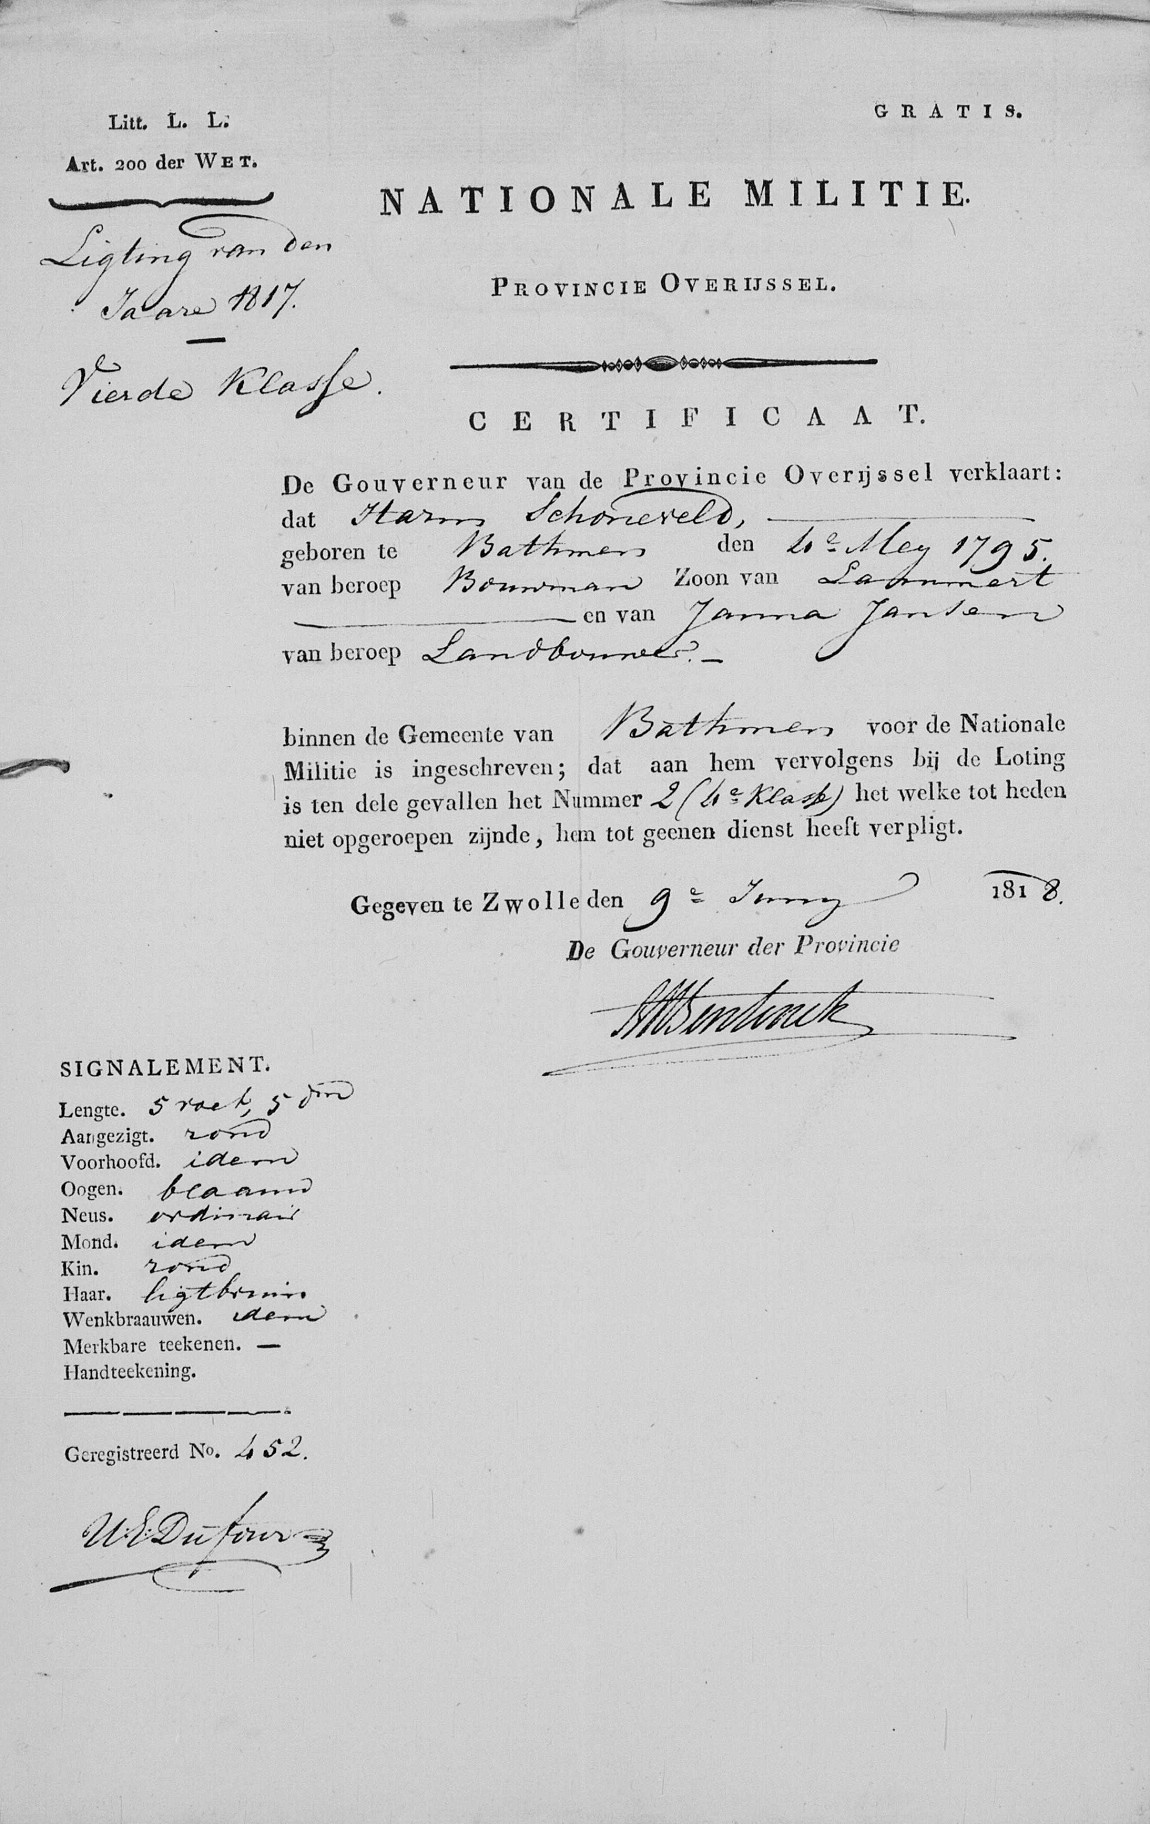 GRATIS.
Litt. L. L.
Art. 200 der WET.
NATIONALE MILITIE.
Ligting van den
Jaare 1817.
PROVINCIE OVERIJSSEL.
Vierde Klasse.
CERTIFICAAT.
De Gouverneur van de Provincie Overijssel verklaart:
dat Harm Schoneveld,
geboren te Bathmen den 4e Mey 1795.
van beroep Bouwman Zoon van Lammert
en van Janna Jansen
van beroep Landbouwer.
binnen de Gemeente van Bathmen voor de Nationale
Militie is ingeschreven; dat aan hem vervolgens bij de Loting
is ten dele gevallen het Nummer 2 (4e Klasse) het welke tot heden
niet opgeroepen zijnde, hem tot geenen dienst heeft verpligt.
Gegeven te Zwolle den 9e Juny 1818.
De Gouverneur der Provincie
Bentinck
SIGNALEMENT.
Lengte. 5 voet, 5 dm
Aangezigt. rond
Voorhoofd. idem
Oogen. blaauw
Neus. ordinair
Mond. idem
Kin. rond
Haar. ligtbruin
Wenkbraauwen. idem
Merkbare teekenen. —
Handteekening.
Geregistreerd No. 452.
U:E: Dufour